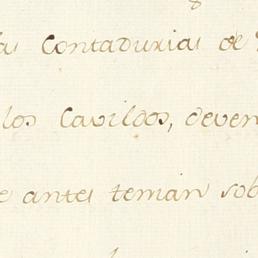 las Contadurias de
los Cavildos, deven
e antes tenian sob